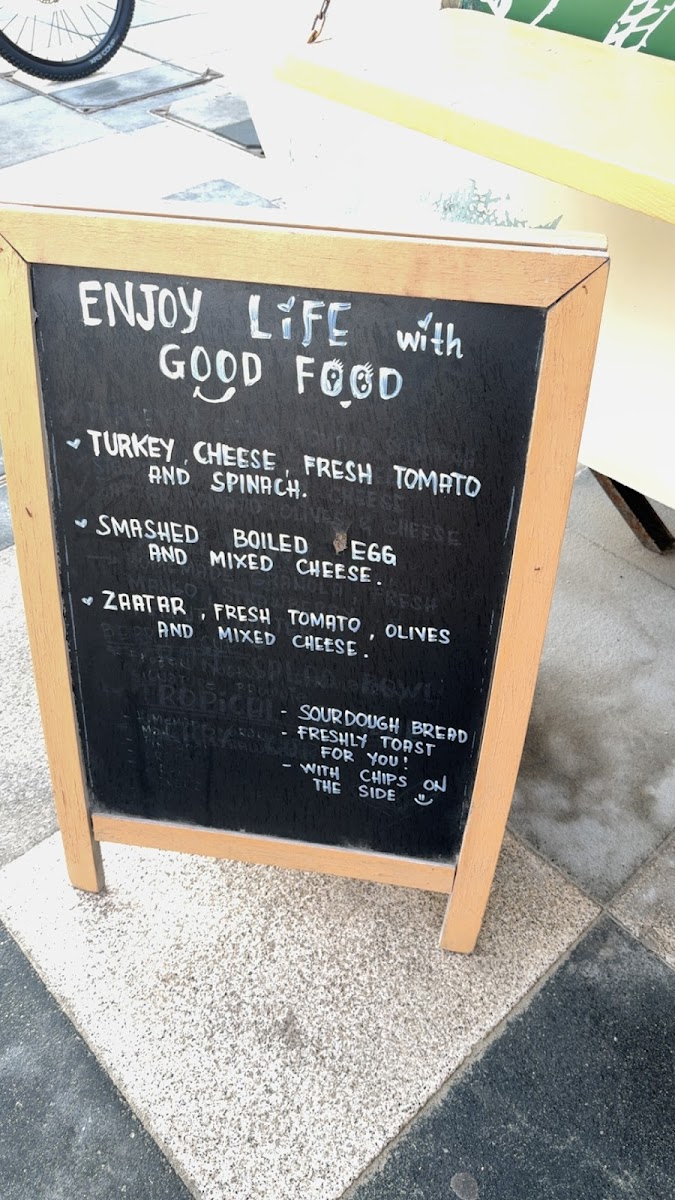 ENJOY LiFE with
GOOD FOOD
TURKEY, CHEESE, FRESH TOMATO
AND SPINACH.
SMASHED BOILED EGG
AND MIXED CHEESE.
ZAATAR, FRESH TOMATO, OLIVES
AND MIXED CHEESE.
- SOURDOUGH BREAD
- FRESHLY TOAST
FOR YOU!
- WITH CHIPS ON
THE SIDE